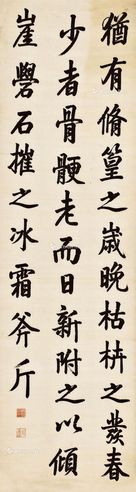 猶有脩篁之歲晚枯枿之發春
少者骨硬老而日新附之以傾
崖礐石摧之冰霜斧斤